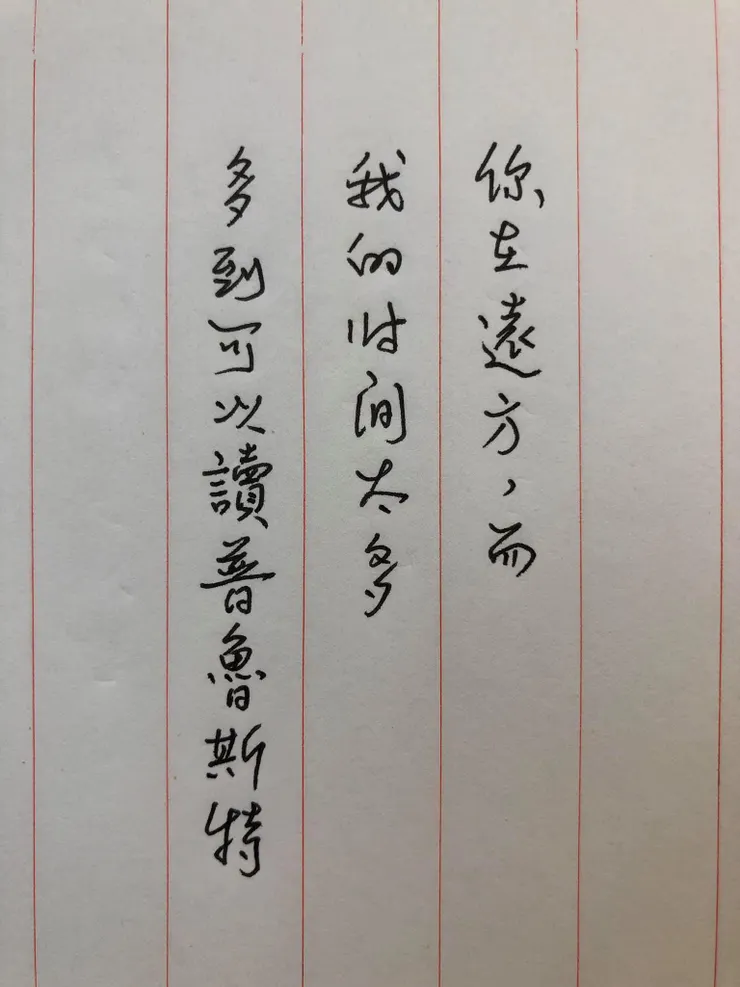 你在遠方，而
我的时间太多
多到可以讀普魯斯特